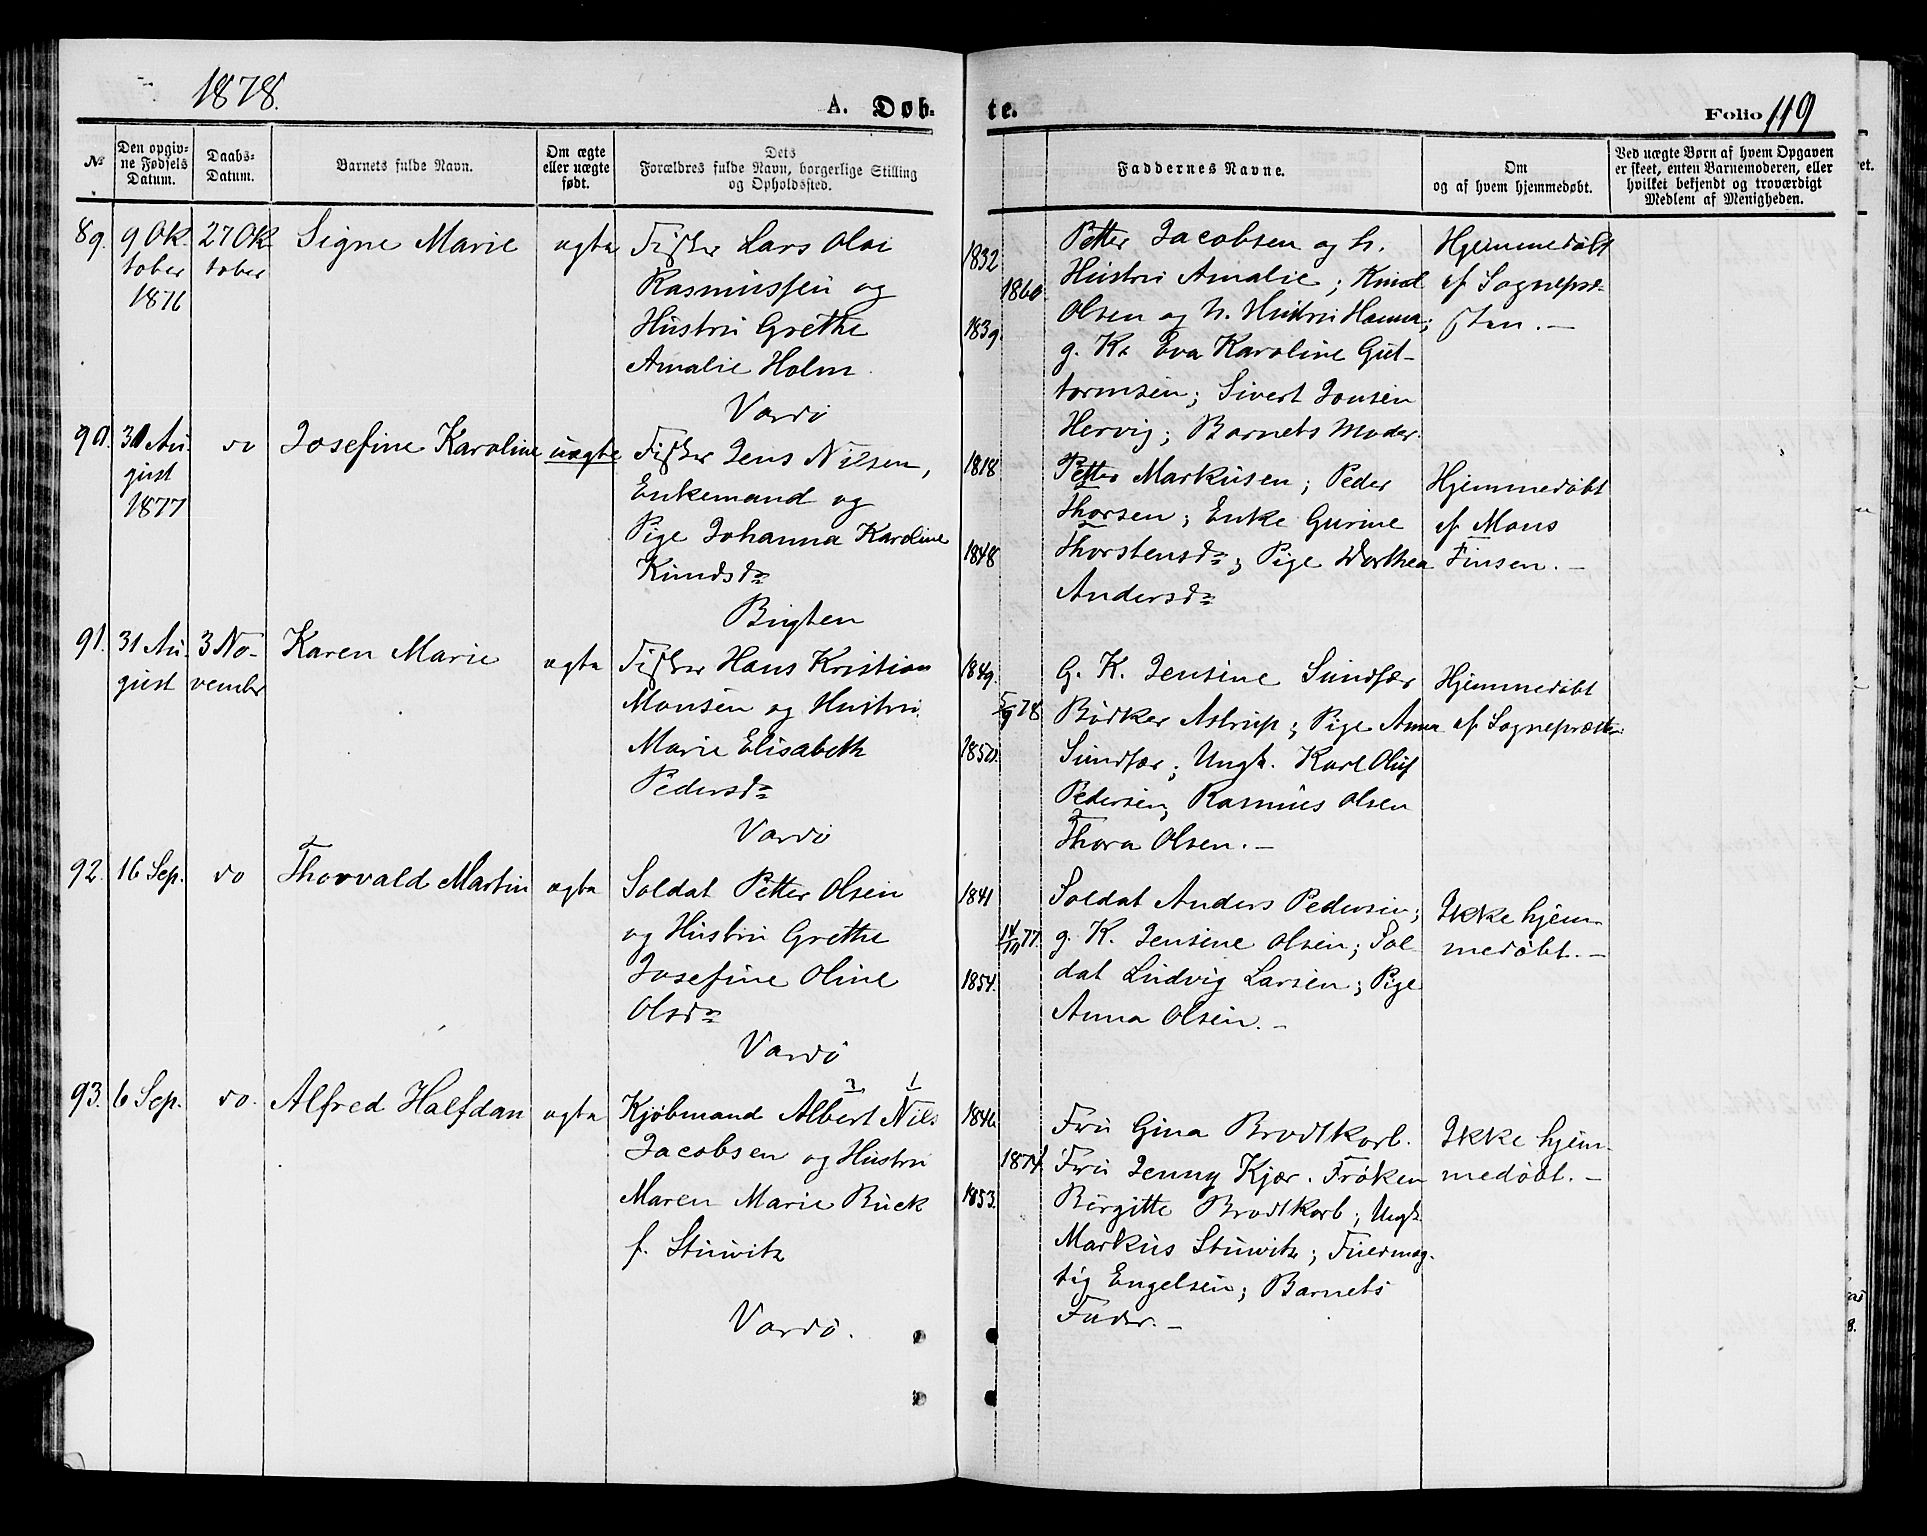 1878.
A. Døb-
te.
Folio 119
No
Den opgiv-
ne Fødsels
Datum.
Daabs-
Datum.
Barnets fulde Navn.
Om ægte
eller uægte
født.
Dets
Forældres fulde Navn, borgerlige Stilling
og Opholdssted.
Faddernes Navne.
Om
og af hvem hjemmedøbt.
Ved uægte Børn af hvem Opgaven
er skeet, enten Barnemoderen, eller
hvilket bekjendt og troværdigt
Medlem af Menigheden.
89.
9 Ok-
tober
1876
27 Ok
tober
Signe Marie
ægte
Fisker Lars Olai
Rasmussen og
Hustru Grethe
Amalie Holm.
Vardö
1832
1839.
1860
Petter Jacobsen og h.
Hustru Amalie; Knud
Olsen og h. Hustru Hanna;
g. K. Eva Karoline Gut-
tormsen; Sivert Jonsen
Hervig; Barnets Moder.
Hjemmedöbt
af Sognepræ-
sten. —
90.
31 Au-
gust
1877
do
Josefine Karoline
uægte
Fisker Jens Nilsen,
Enkemand og
Pige Johanna Karoline
Knudsdr
Bugten
1818
1848
Petter Markusen; Peder
Thorsen; Enke Gurine
Thorstensdr; Pige Dorthea
Andersdr
Hjemmedöbt
af Mons
Finsen. —
91.
31 Au-
gust
3 No-
vember
Karen Marie
ægte
Fisker Hans Kristian
Monsen og Hustru
Marie Elisabeth
Pedersdr
Vardö
1849.
1850.
5/9 78
G. K. Jensine Sundfær
Bödker Astrup; Pige Anna
Sundfær; Ungk. Karl Oluf
Pedersen, Rasmus Olsen
Thora Olsen. —
Hjemmedöbt
af Sognepræsten
92.
16 Sep.
do
Thorvald Martin
ægte
Soldat Petter Olsen
og Hustru Grethe
Josefine Oline
Olsdr
Vardö
1841
1854.
14/10 77.
Soldat Anders Pedersen;
g. K. Jensine Olsen; Sol-
dat Ludvig Larsen; Pige
Anna Olsen. —
Ikke hjem-
medöbt. —
93.
6 Sep.
do.
Alfred Halfdan
ægte
2 1
Kjöbmand Albert Nils
Jacobsen og Hustru
Maren Marie Buck
f. Stuwitz
Vardö.
1846
1853.
1874.
Fru Gina Brodtkorb.
Fru Jenny Kjær. Fröken
Birgitte Brodtkorb; Ungk.
Markus Stuwitz; Fuldmæg-
tig Engelsen; Barnets
Fader. —
Ikke hjem-
medöbt. —